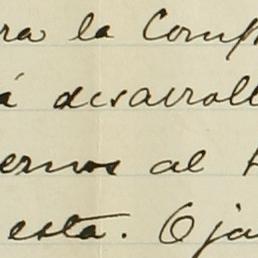 ra la Comp
á desarroll
ernos al
esta. Oja